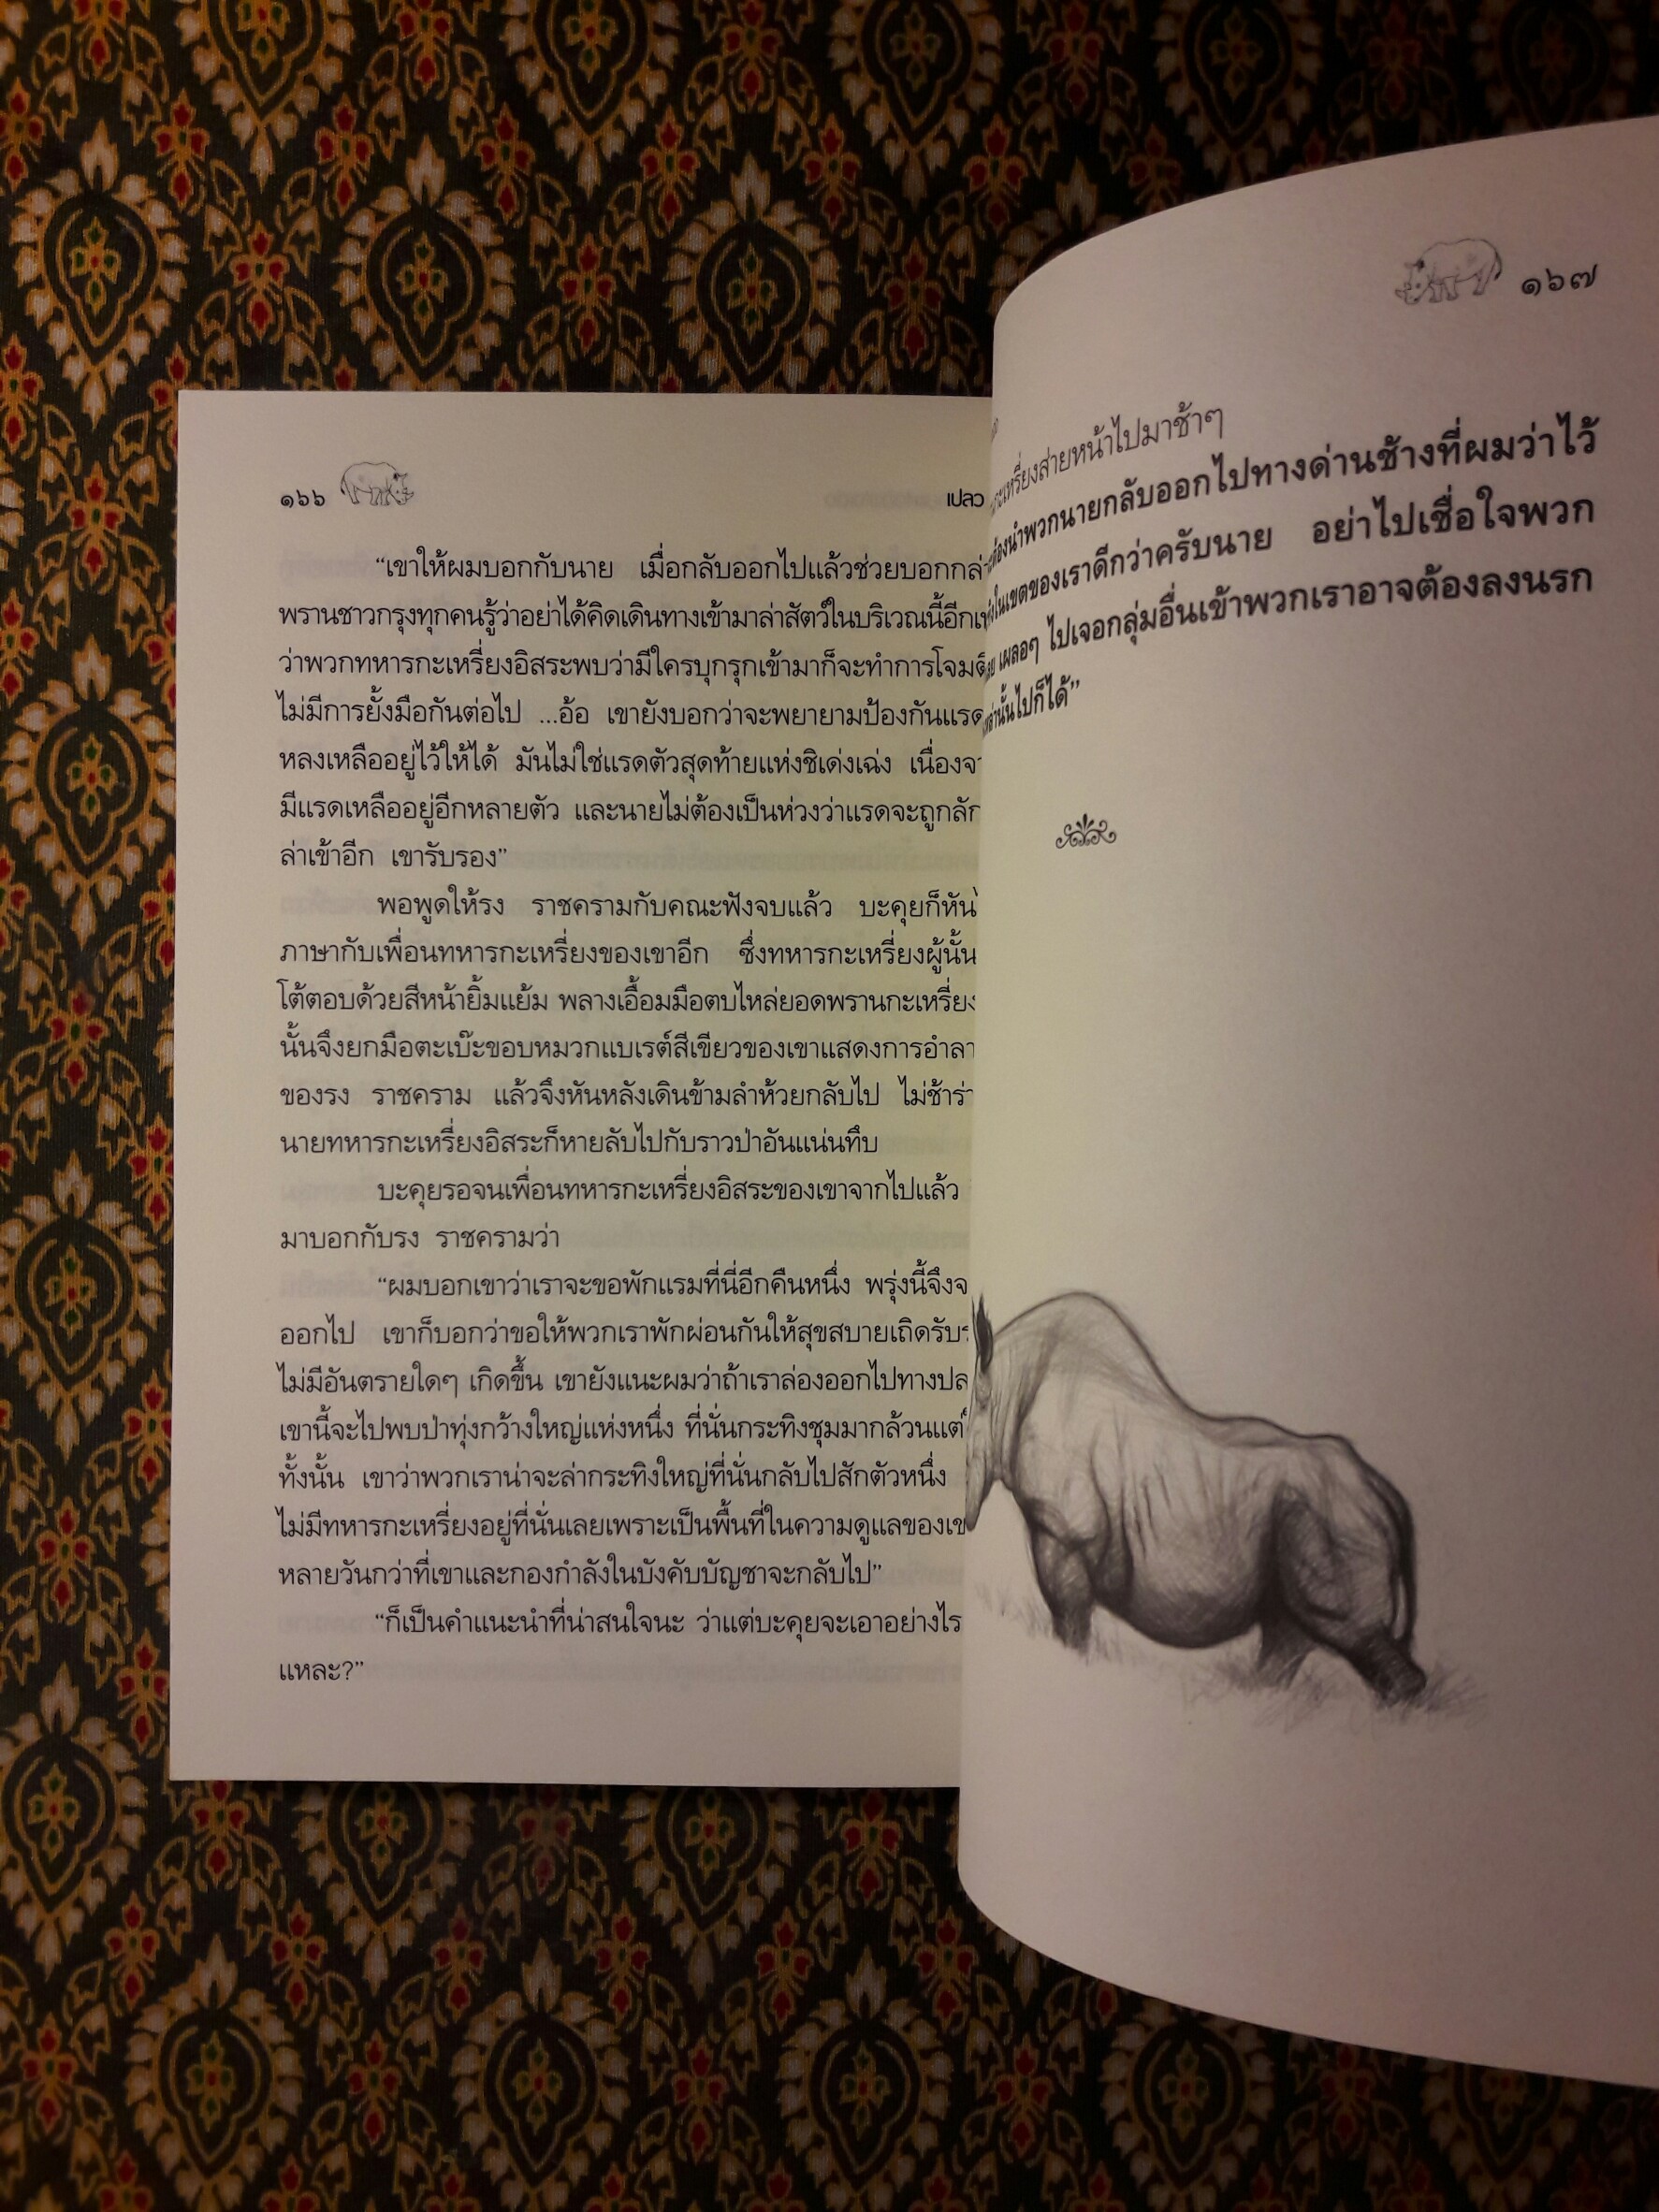 ๑๖๖
เปลว
“เขาให้ผมบอกกับนาย เมื่อกลับออกไปแล้วช่วยบอกกล่
พรานชาวกรุงทุกคนรู้ว่าอย่าได้คิดเดินทางเข้ามาล่าสัตว์ในบริเวณนี้อีก
ว่าพวกทหารกะเหรี่ยงอิสระพบว่ามีใครบุกรุกเข้ามาก็จะทำการโจมตี
ไม่มีการยั้งมือกันต่อไป ...อ้อ เขายังบอกว่าจะพยายามป้องกันแรด
หลงเหลืออยู่ไว้ให้ได้ มันไม่ใช่แรดตัวสุดท้ายแห่งชิเด่งเฉ่ง เนื่องจา
มีแรดเหลืออยู่อีกหลายตัว และนายไม่ต้องเป็นห่วงว่าแรดจะถูกลัก
ล่าเข้าอีก เขารับรอง”
พอพูดให้รง ราชครามกับคณะฟังจบแล้ว บะคุยก็หัน
ภาษากับเพื่อนทหารกะเหรี่ยงของเขาอีก ซึ่งทหารกะเหรี่ยงผู้นั้น
โต้ตอบด้วยสีหน้ายิ้มแย้ม พลางเอื้อมมือตบไหล่ยอดพรานกะเหรี่ยง
นั้นจึงยกมือตะเบ๊ะขอบหมวกแบเรต์สีเขียวของเขาแสดงการอำลา
ของรง ราชคราม แล้วจึงหันหลังเดินข้ามลำห้วยกลับไป ไม่ช้าร่า
นายทหารกะเหรี่ยงอิสระก็หายลับไปกับราวป่าอันแน่นทึบ
บะคุยรอจนเพื่อนทหารกะเหรี่ยงอิสระของเขาจากไปแล้ว
มาบอกกับรง ราชครามว่า
“ผมบอกเขาว่าเราจะขอพักแรมที่นี่อีกคืนหนึ่ง พรุ่งนี้จึงจ
ออกไป เขาก็บอกว่าขอให้พวกเราพักผ่อนกันให้สุขสบายเถิดรับร
ไม่มีอันตรายใดๆ เกิดขึ้น เขายังแนะผมว่าถ้าเราล่องออกไปทางปล
เขานี้จะไปพบป่าทุ่งกว้างใหญ่แห่งหนึ่ง ที่นั่นกระทิงชุมมากล้วนแต่
ทั้งนั้น เขาว่าพวกเราน่าจะล่ากระทิงใหญ่ที่นั่นกลับไปสักตัวหนึ่ง
ไม่มีทหารกะเหรี่ยงอยู่ที่นั่นเลยเพราะเป็นพื้นที่ในความดูแลของเข
หลายวันกว่าที่เขาและกองกำลังในบังคับบัญชาจะกลับไป”
“ก็เป็นคำแนะนำที่น่าสนใจนะ ว่าแต่บะคุยจะเอาอย่างไร
แหละ?”
๑๖๗
ะเหรี่ยงส่ายหน้าไปมาช้าๆ
ต้องนำพวกนายกลับออกไปทางด่านช้างที่ผมว่าไว้
ในเขตของเราดีกว่าครับนาย อย่าไปเชื่อใจพวก
เผลอๆ ไปเจอกลุ่มอื่นเข้าพวกเราอาจต้องลงนรก
เท่านั้นไปก็ได้”